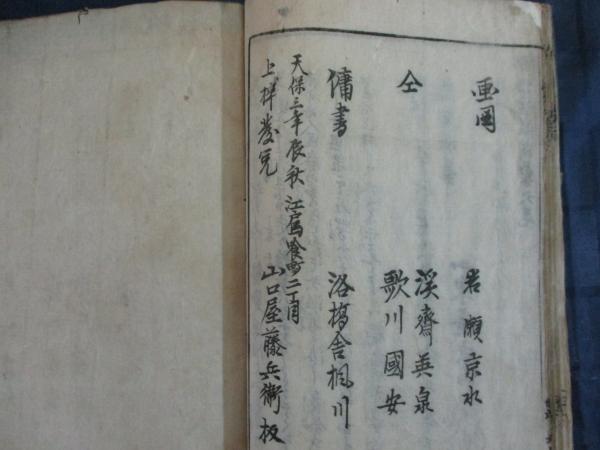 画図 岩瀬京水
仝 溪齋英泉
歌川國安
傭書 浴橋舎楓川
天保三年辰秋 江戸馬喰町二丁目
上梓發兌 山口屋藤兵衛板